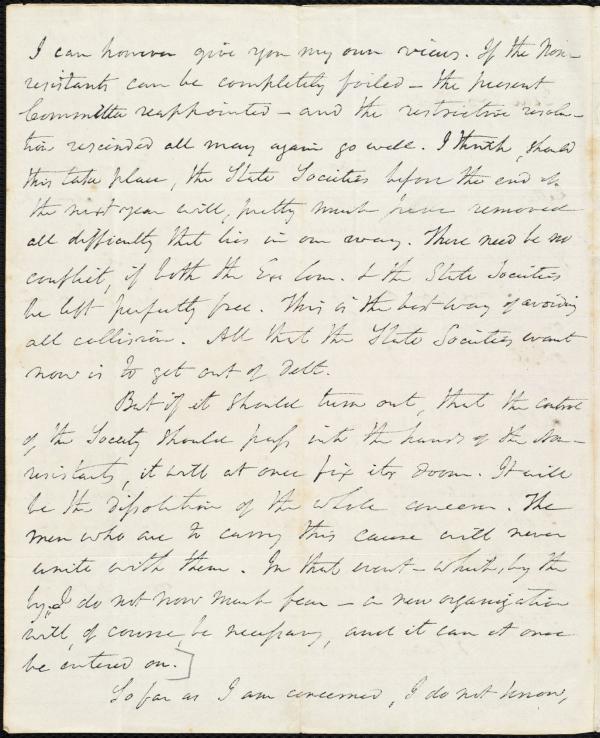 I can however give you my own views. If the Non-
resistants can be completely foiled - the present
Committee reappointed - and the restrictive resolu-
tion rescinded all may again go well. I think, should
this take place, the State Societies before the end of
the next year will, pretty much have removed
all difficulty that lies in our way. There need be no
conflict, if both the Ex. Com. & the State Societies
be left perfectly free. This is the best way of avoiding
all collision. All that the State Societies want
now is to get out of debt.
But if it should turn out, that the control
of the Society should pass into the hands of the Non-
resistants, it will at once fix its doom. It will
be the dissolution of the whole concern. The
men who are to carry this cause will never
unite with them. In that event - which, by the
by, I do not now much fear - a new organization
will, of course, be necessary, and it can at once
be entered on.]
So far as I am concerned, I do not know,